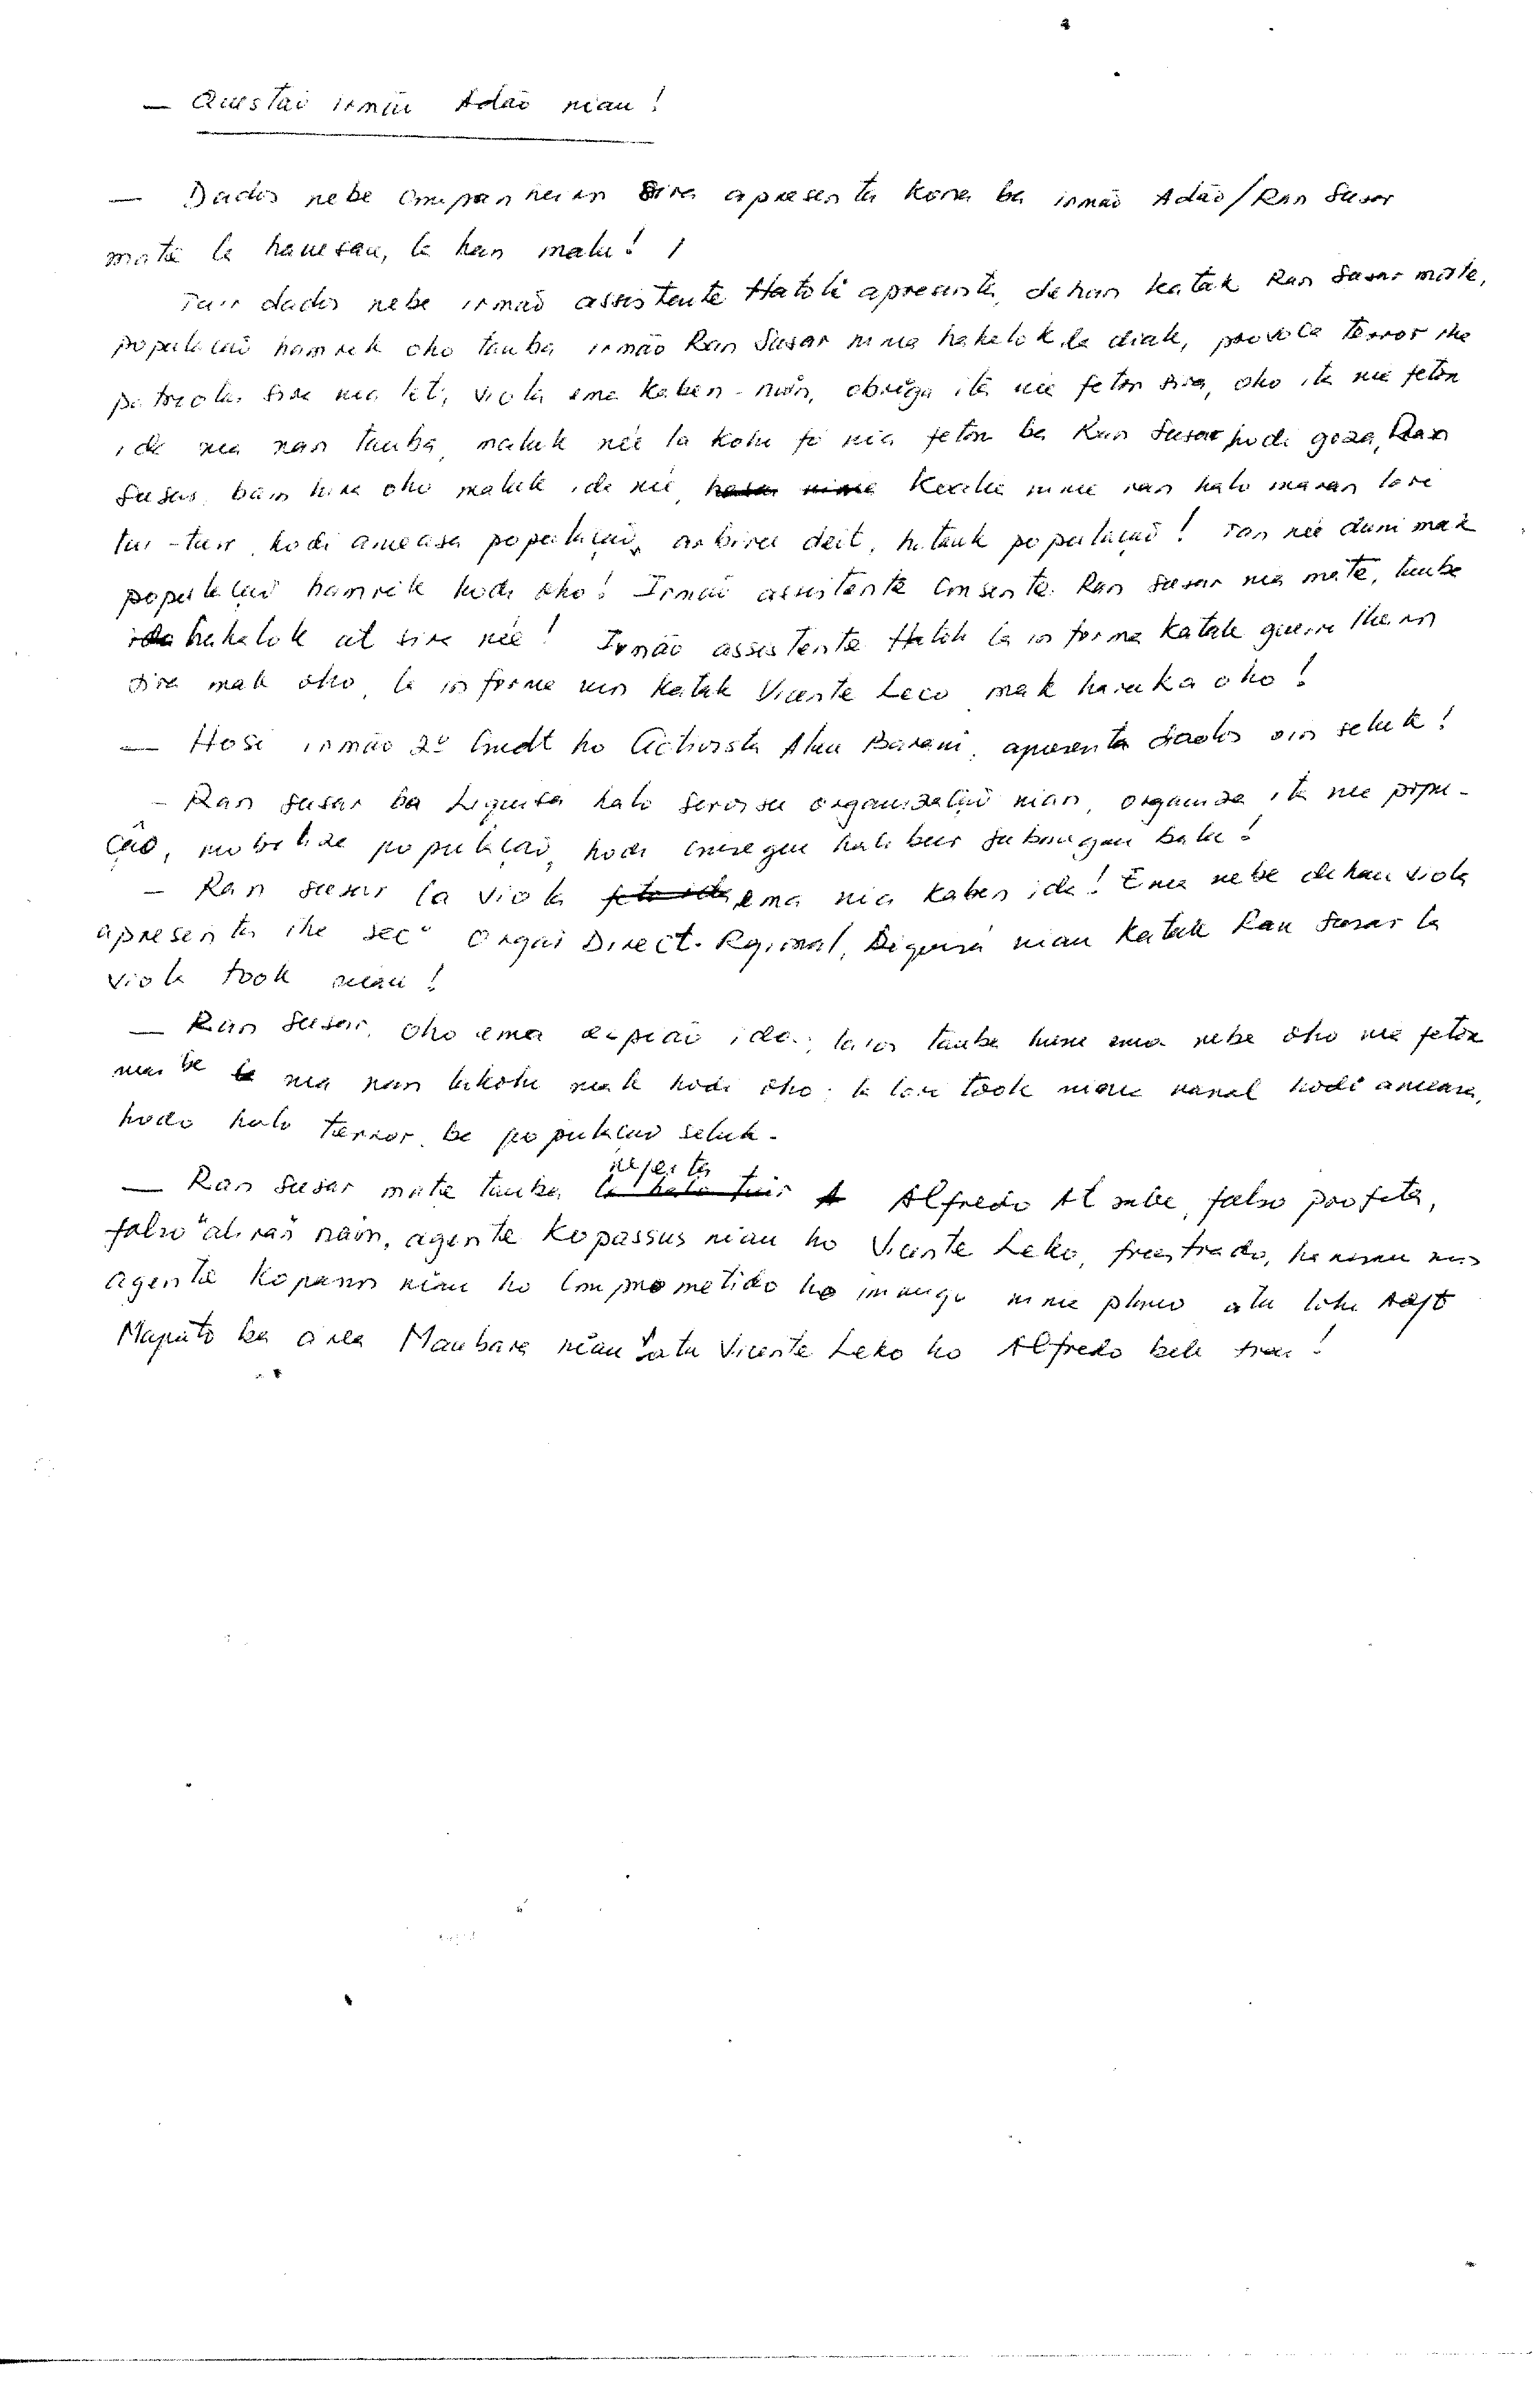 — Questaõ irmão Adaõ nian!
— Dados nebe companheiros sira apresenta kona ba irmão Adão/Ran Susar
mate la hanesan, la han malu!
Tuir dados nebe irmaõ assistente Hatoli apresenta, dehan katak Ran Susar mate,
populaçaõ hamrik oho tauba irmão Ran Susar ninia hahalok la diak, provoca terror iha
patriotas sira nia let, viola ema kaben-nain, obriga ita nia feton sira, oho ita nia feton
ida nia nan tauba, maluk neé la kohi fó nia feton ba Ran Susar hodi goza, Ran
Susar, bain hira oho maluk ida neé, ninia ran halo maran lori
tui-tuir, hodi ameasa populaçaõ, arbiru deit, hatauk populaçaõ! Tan neé duni mak
populaçaõ hamrik hodi oho! Irmaõ assistente consente Ran Susar nia mate, tauba
hahalok at sira neé! Irmão assistente Hatoli la informa katak guerrilheiros
sira mak oho, la informa mos katak Vicente Leco mak haruka oho!
— Hosi irmão 2º Cmdt ho Activista Alau Barani, apresenta dados oin seluk!
- Ran Susar ba Liquisá halo servisu organizaçaõ nian, organiza ita nia popu-
çaõ, mobiliza populaçaõ, hodi consegue halibur subanigau balu!
- Ran Susar la viola ema nia kaben ida! Ema nebe dehan viola
apresenta iha secº Orgaõ Direct. Rgional, Liquisá nian katak Ran Susar la
viola took nian!
— Ran Susar, oho ema espiaõ ida, laios tauba husu ema nebe oho nia feton
mai be nia nan lakohi mak hodi oho; la lori took niaia raral hodi ameasa,
hodo halo terror ba populaçaõ seluk.
— Ran Susar mate tauba rejeita Alfredo At sabe, falso profeta,
falso "aliran" nain, agente Kopassus nian ho Vicente Leko, frustrado, hanesan mos
agente Kopassus nian ho comprometido ho inimigo ninia plano atu lohi Adjto
Maputo ba area Maubara nian atu Vicente Leko ho Alfredo bele tiru!